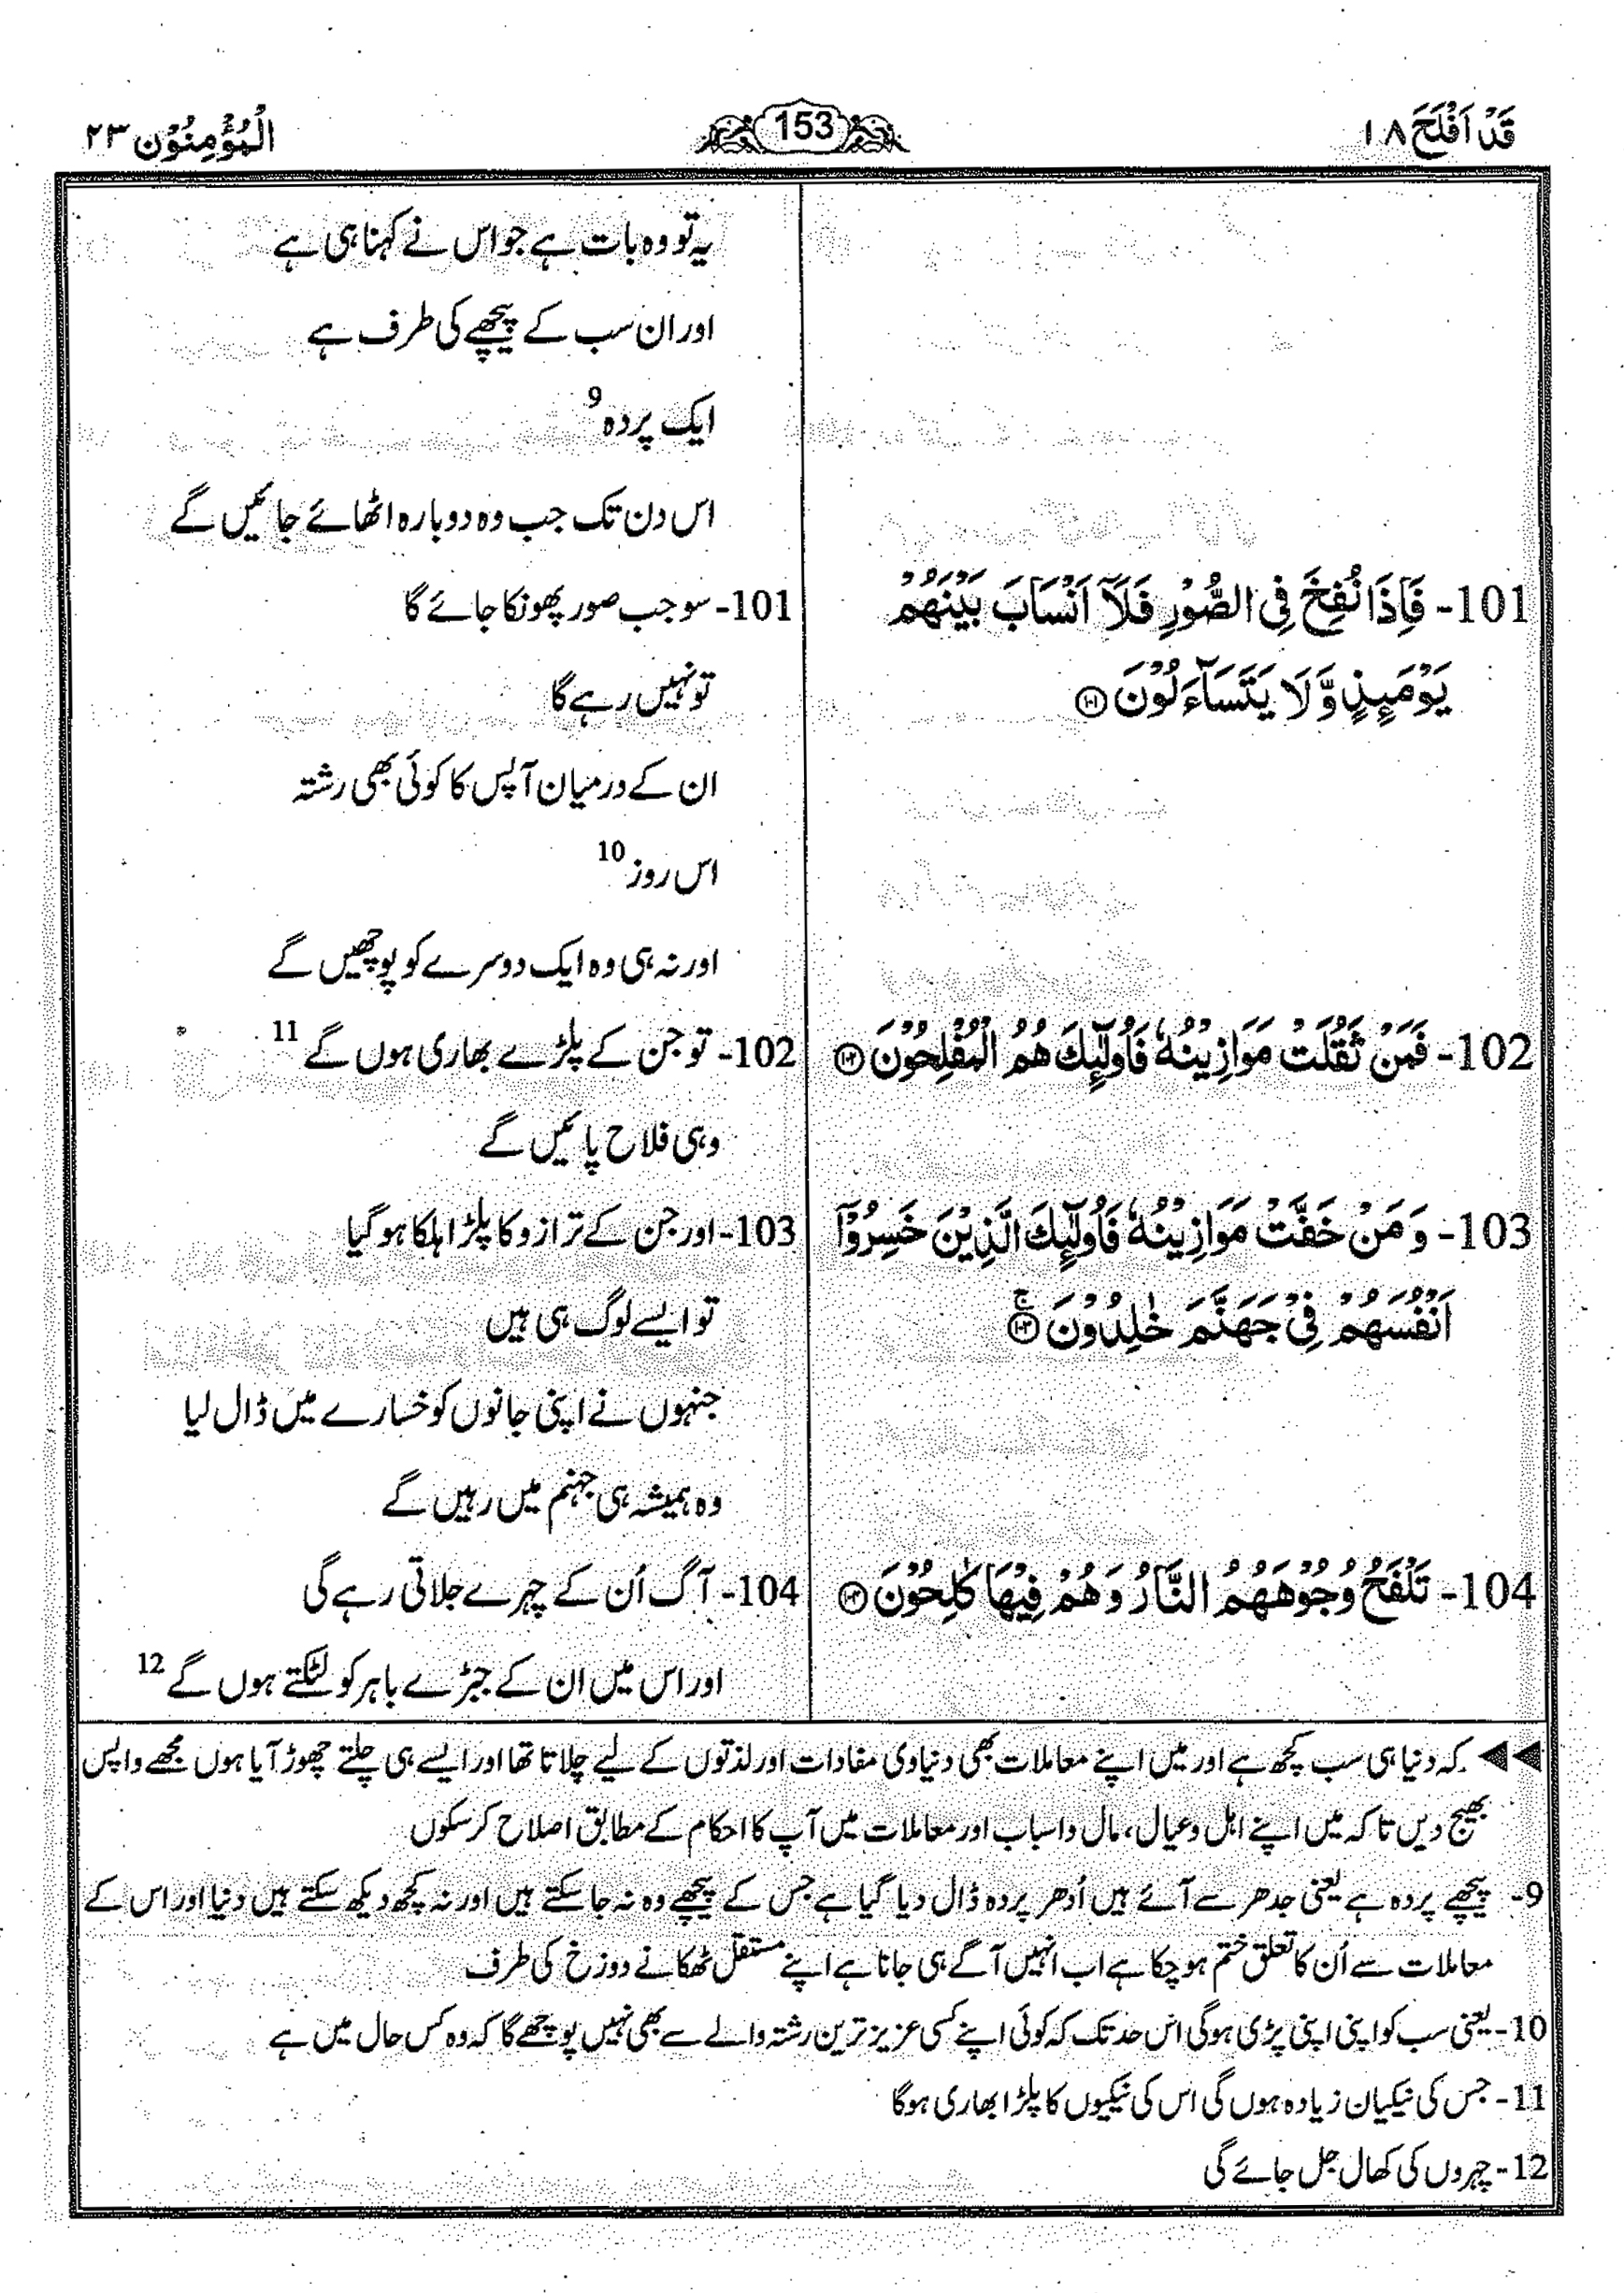 قَدْ اَفْلَحَ ۱۸
153
الْمُؤْمِنُوْن ۲۳
یہ تو وہ بات ہے جو اس نے کہنا ہی ہے
اور ان سب کے پیچھے کی طرف ہے
ایک پردہ 9
اس دن تک جب وہ دوبارہ اٹھائے جائیں گے
101- فَاِذَا نُفِخَ فِی الصُّوْرِ فَلَاۤ اَنْسَابَ بَیْنَهُمْ
یَوْمَىِٕذٍ وَّ لَا یَتَسَآءَلُوْنَ ۝۱۰۱
101- سو جب صور پھونکا جائے گا
تو نہیں رہے گا
ان کے درمیان آپس کا کوئی بھی رشتہ
اس روز 10
اور نہ ہی وہ ایک دوسرے کو پوچھیں گے
102- فَمَنْ ثَقُلَتْ مَوَازِیْنُهٗ فَاُولٰٓىِٕكَ هُمُ الْمُفْلِحُوْنَ ۝۱۰۲
102- تو جن کے پلڑے بھاری ہوں گے 11
وہی فلاح پائیں گے
103- وَ مَنْ خَفَّتْ مَوَازِیْنُهٗ فَاُولٰٓىِٕكَ الَّذِیْنَ خَسِرُوْۤا
اَنْفُسَهُمْ فِیْ جَهَنَّمَ خٰلِدُوْنَ ۝۱۰۳ ۚ
103- اور جن کے ترازو کا پلڑا ہلکا ہو گیا
تو ایسے لوگ ہی ہیں
جنہوں نے اپنی جانوں کو خسارے میں ڈال لیا
وہ ہمیشہ ہی جہنم میں رہیں گے
104- تَلْفَحُ وُجُوْهَهُمُ النَّارُ وَ هُمْ فِیْهَا كٰلِحُوْنَ ۝۱۰۴
104- آگ اُن کے چہرے جلاتی رہے گی
اور اس میں ان کے جبڑے باہر کو لٹکتے ہوں گے 12
◄◄ کہ دنیا ہی سب کچھ ہے اور میں اپنے معاملات بھی دنیاوی مفادات اور لذتوں کے لیے چلاتا تھا اور ایسے ہی چلتے چھوڑ آیا ہوں مجھے واپس
بھیج دیں تاکہ میں اپنے اہل و عیال، مال و اسباب اور معاملات میں آپ کا احکام کے مطابق اصلاح کر سکوں
9- پیچھے پردہ ہے یعنی جدھر سے آئے ہیں اُدھر پردہ ڈال دیا گیا ہے جس کے پیچھے وہ نہ جا سکتے ہیں اور نہ کچھ دیکھ سکتے ہیں دنیا اور اس کے
معاملات سے اُن کا تعلق ختم ہو چکا ہے اب انہیں آگے ہی جانا ہے اپنے مستقل ٹھکانے دوزخ کی طرف
10- یعنی سب کو اپنی اپنی پڑی ہوگی اس حد تک کہ کوئی اپنے کسی عزیز ترین رشتہ والے سے بھی نہیں پوچھے گا کہ وہ کس حال میں ہے
11- جس کی نیکیاں زیادہ ہوں گی اس کی نیکیوں کا پلڑا بھاری ہوگا
12- چہروں کی کھال جل جائے گی